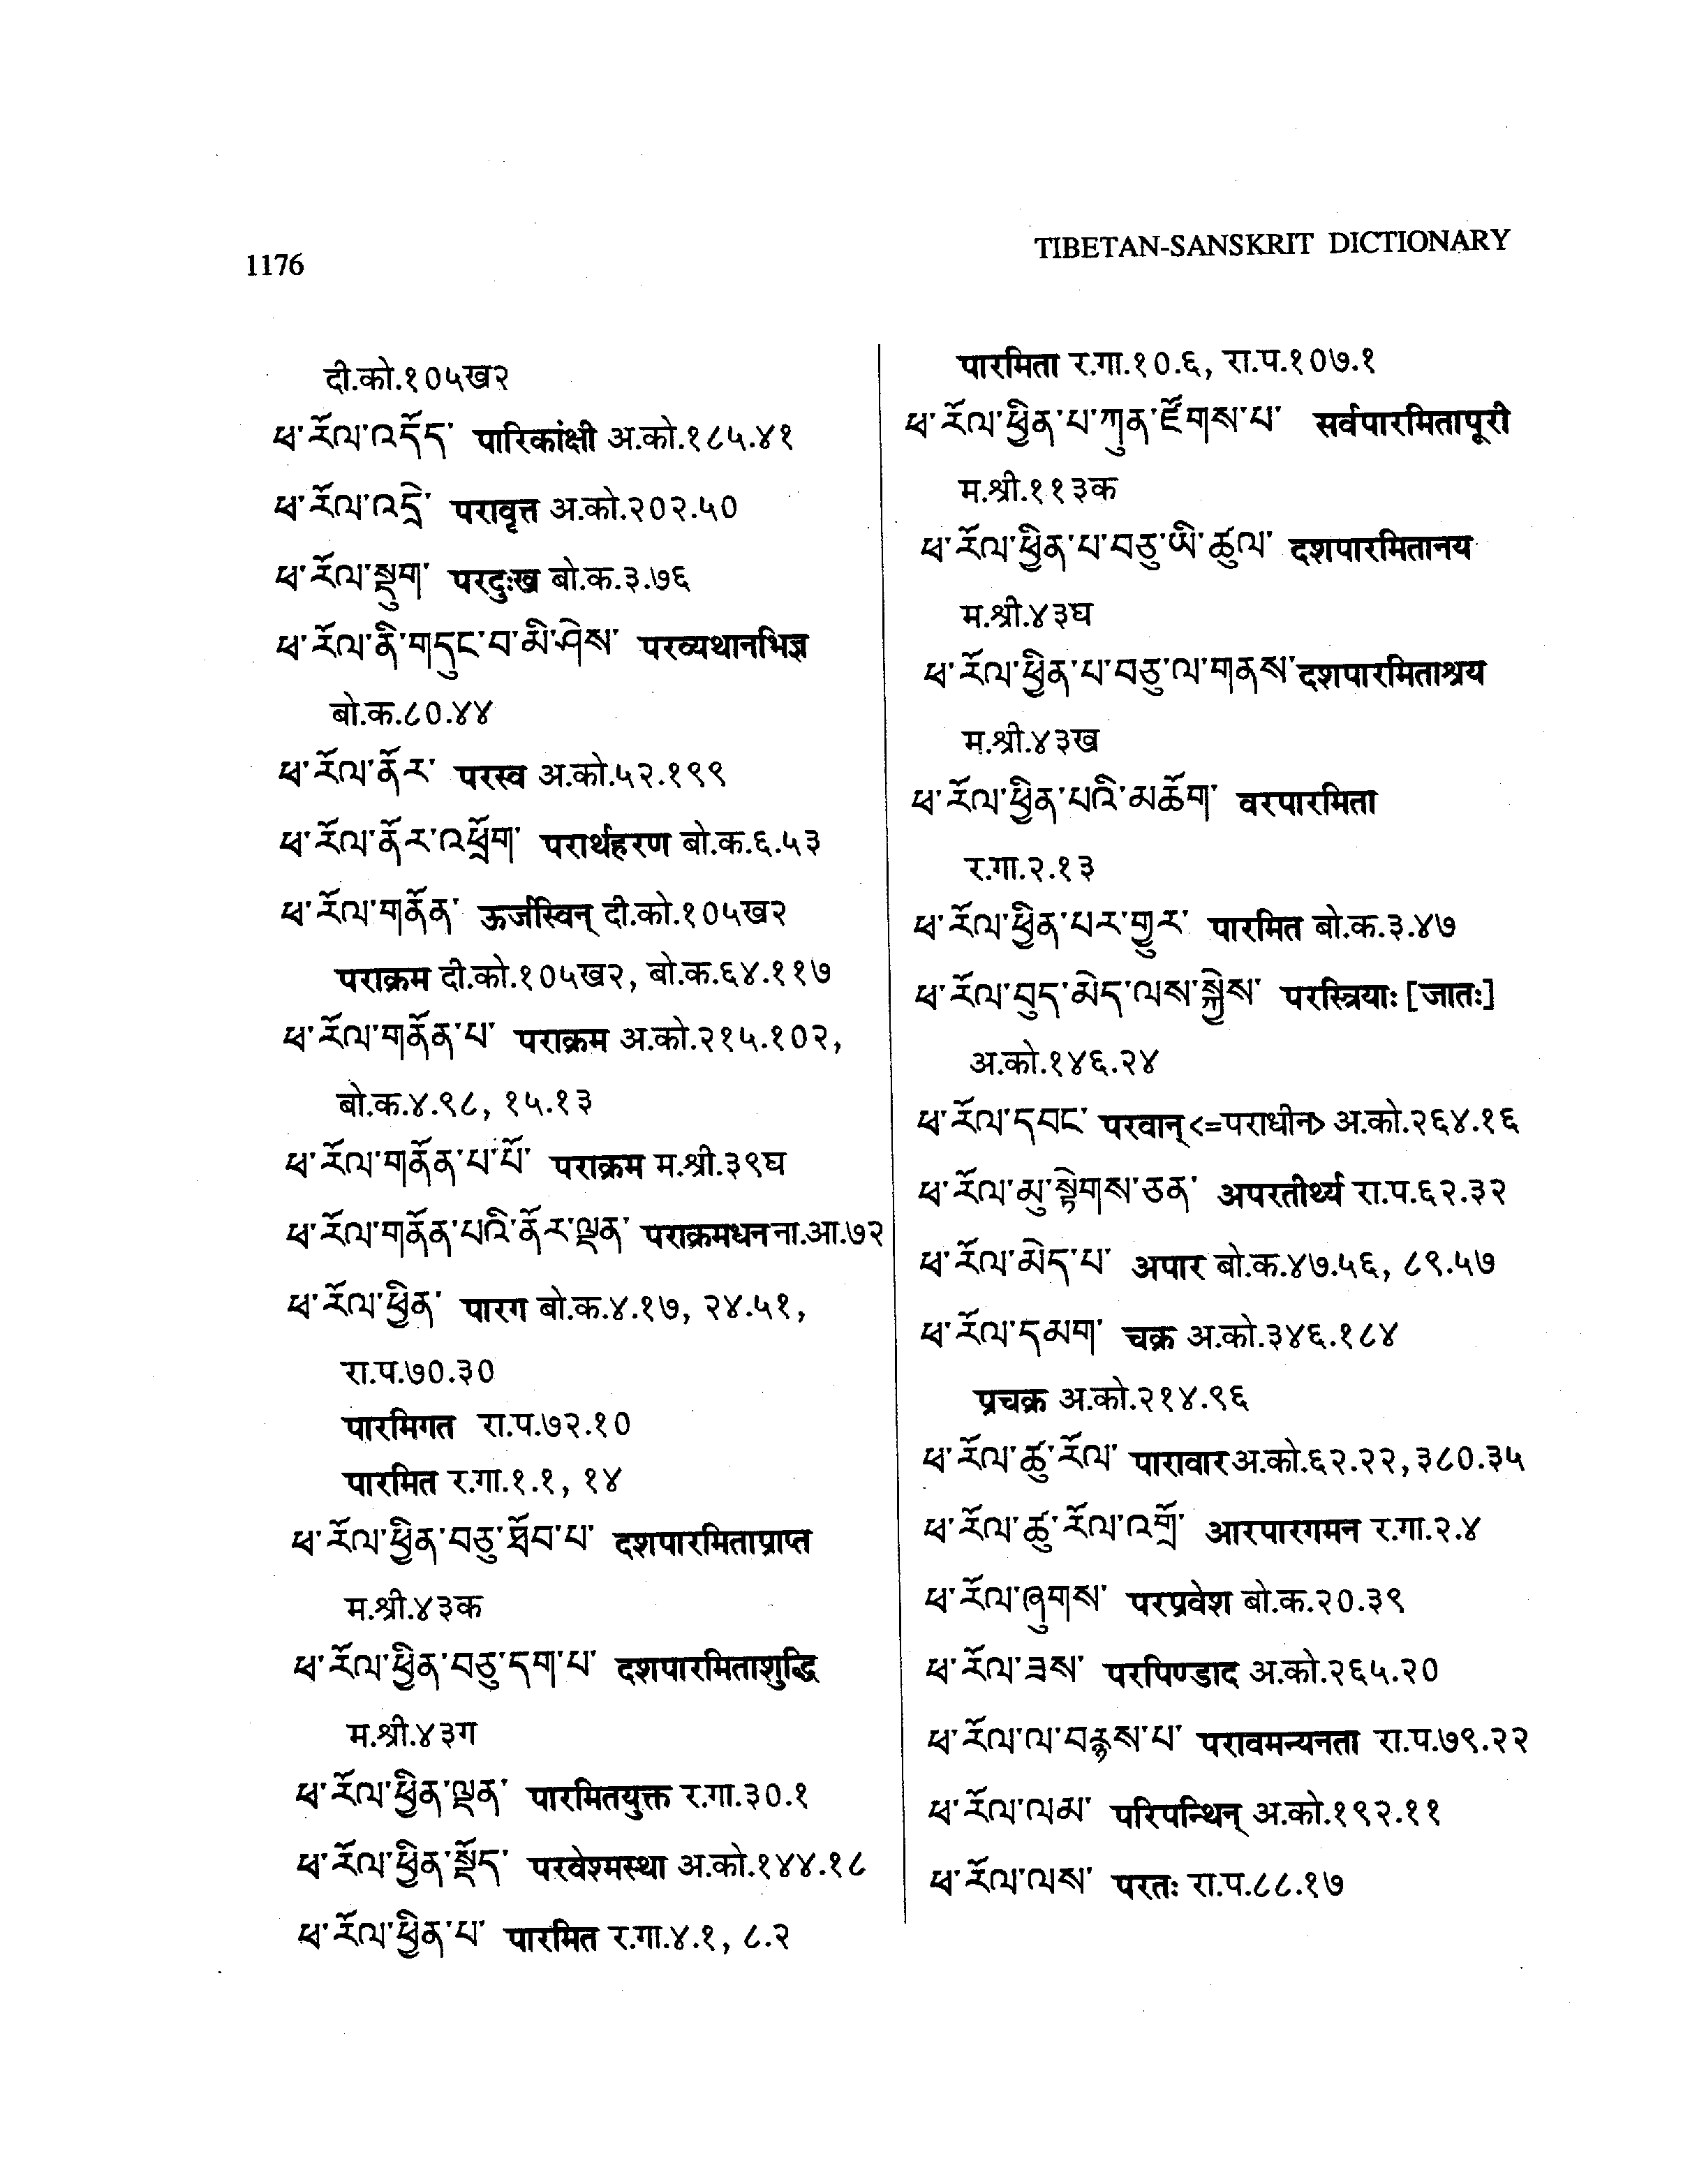 1176
TIBETAN-SANSKRIT DICTIONARY
दी.को.१०५ख२
ཕ་རོལ་འདོད་ पारिकांक्षी अ.को.१८५.४१
ཕ་རོལ་འདྲེ་ परावृत्त अ.को.२०२.५०
ཕ་རོལ་སྡུག་ परदुःख बो.क.३.७६
ཕ་རོལ་ནི་གདུང་བ་མི་ཤེས་ परव्यथानभिज्ञ
बो.क.८०.४४
ཕ་རོལ་ནོར་ परस्व अ.को.५२.१९९
ཕ་རོལ་ནོར་འཕྲོག་ परार्थहरण बो.क.६.५३
ཕ་རོལ་གནོན་ ऊर्जस्विन् दी.को.१०५ख२
पराक्रम दी.को.१०५ख२, बो.क.६४.११७
ཕ་རོལ་གནོན་པ་ पराक्रम अ.को.२१५.१०२,
बो.क.४.९८, १५.१३
ཕ་རོལ་གནོན་པ་པོ་ पराक्रम म.श्री.३९घ
ཕ་རོལ་གནོན་པའི་ནོར་ལྡན་ पराक्रमधन ना.आ.७२
ཕ་རོལ་ཕྱིན་ पारग बो.क.४.१७, २४.५१,
रा.प.७०.३०
पारमिगत रा.प.७२.१०
पारमित र.गा.१.१, १४
ཕ་རོལ་ཕྱིན་བཅུ་ཐོབ་པ་ दशपारमिताप्राप्त
म.श्री.४३क
ཕ་རོལ་ཕྱིན་བཅུ་དག་པ་ दशपारमिताशुद्धि
म.श्री.४३ग
ཕ་རོལ་ཕྱིན་ལྡན་ पारमितयुक्त र.गा.३०.१
ཕ་རོལ་ཕྱིན་སྡོད་ परवेश्मस्था अ.को.१४४.१८
ཕ་རོལ་ཕྱིན་པ་ पारमित र.गा.४.१, ८.२
पारमिता र.गा.१०.६, रा.प.१०७.१
ཕ་རོལ་ཕྱིན་པ་ཀུན་རྫོགས་པ་ सर्वपारमितापूरी
म.श्री.११३क
ཕ་རོལ་ཕྱིན་པ་བཅུ་ཡི་ཚུལ་ दशपारमितानय
म.श्री.४३घ
ཕ་རོལ་ཕྱིན་པ་བཅུ་ལ་གནས་ दशपारमिताश्रय
म.श्री.४३ख
ཕ་རོལ་ཕྱིན་པའི་མཆོག་ वरपारमिता
र.गा.२.१३
ཕ་རོལ་ཕྱིན་པར་གྱུར་ पारमित बो.क.३.४७
ཕ་རོལ་བུད་མེད་ལས་སྐྱེས་ परस्त्रियाः [जातः]
अ.को.१४६.२४
ཕ་རོལ་དབང་ परवान् <=पराधीन> अ.को.२६४.१६
ཕ་རོལ་མུ་སྟེགས་ཅན་ अपरतीर्थ्य रा.प.६२.३२
ཕ་རོལ་མེད་པ་ अपार बो.क.४७.५६, ८९.५७
ཕ་རོལ་དམག་ चक्र अ.को.३४६.१८४
प्रचक्र अ.को.२१४.९६
ཕ་རོལ་ཚུ་རོལ་ पारावार अ.को.६२.२२, ३८०.३५
ཕ་རོལ་ཚུ་རོལ་འགྲོ་ आरपारगमन र.गा.२.४
ཕ་རོལ་ཞུགས་ परप्रवेश बो.क.२०.३९
ཕ་རོལ་ཟས་ परपिण्डाद अ.को.२६५.२०
ཕ་རོལ་ལ་བརྙས་པ་ परावमन्यनता रा.प.७९.२२
ཕ་རོལ་ལམ་ परिपन्थिन् अ.को.१९२.११
ཕ་རོལ་ལས་ परतः रा.प.८८.१७